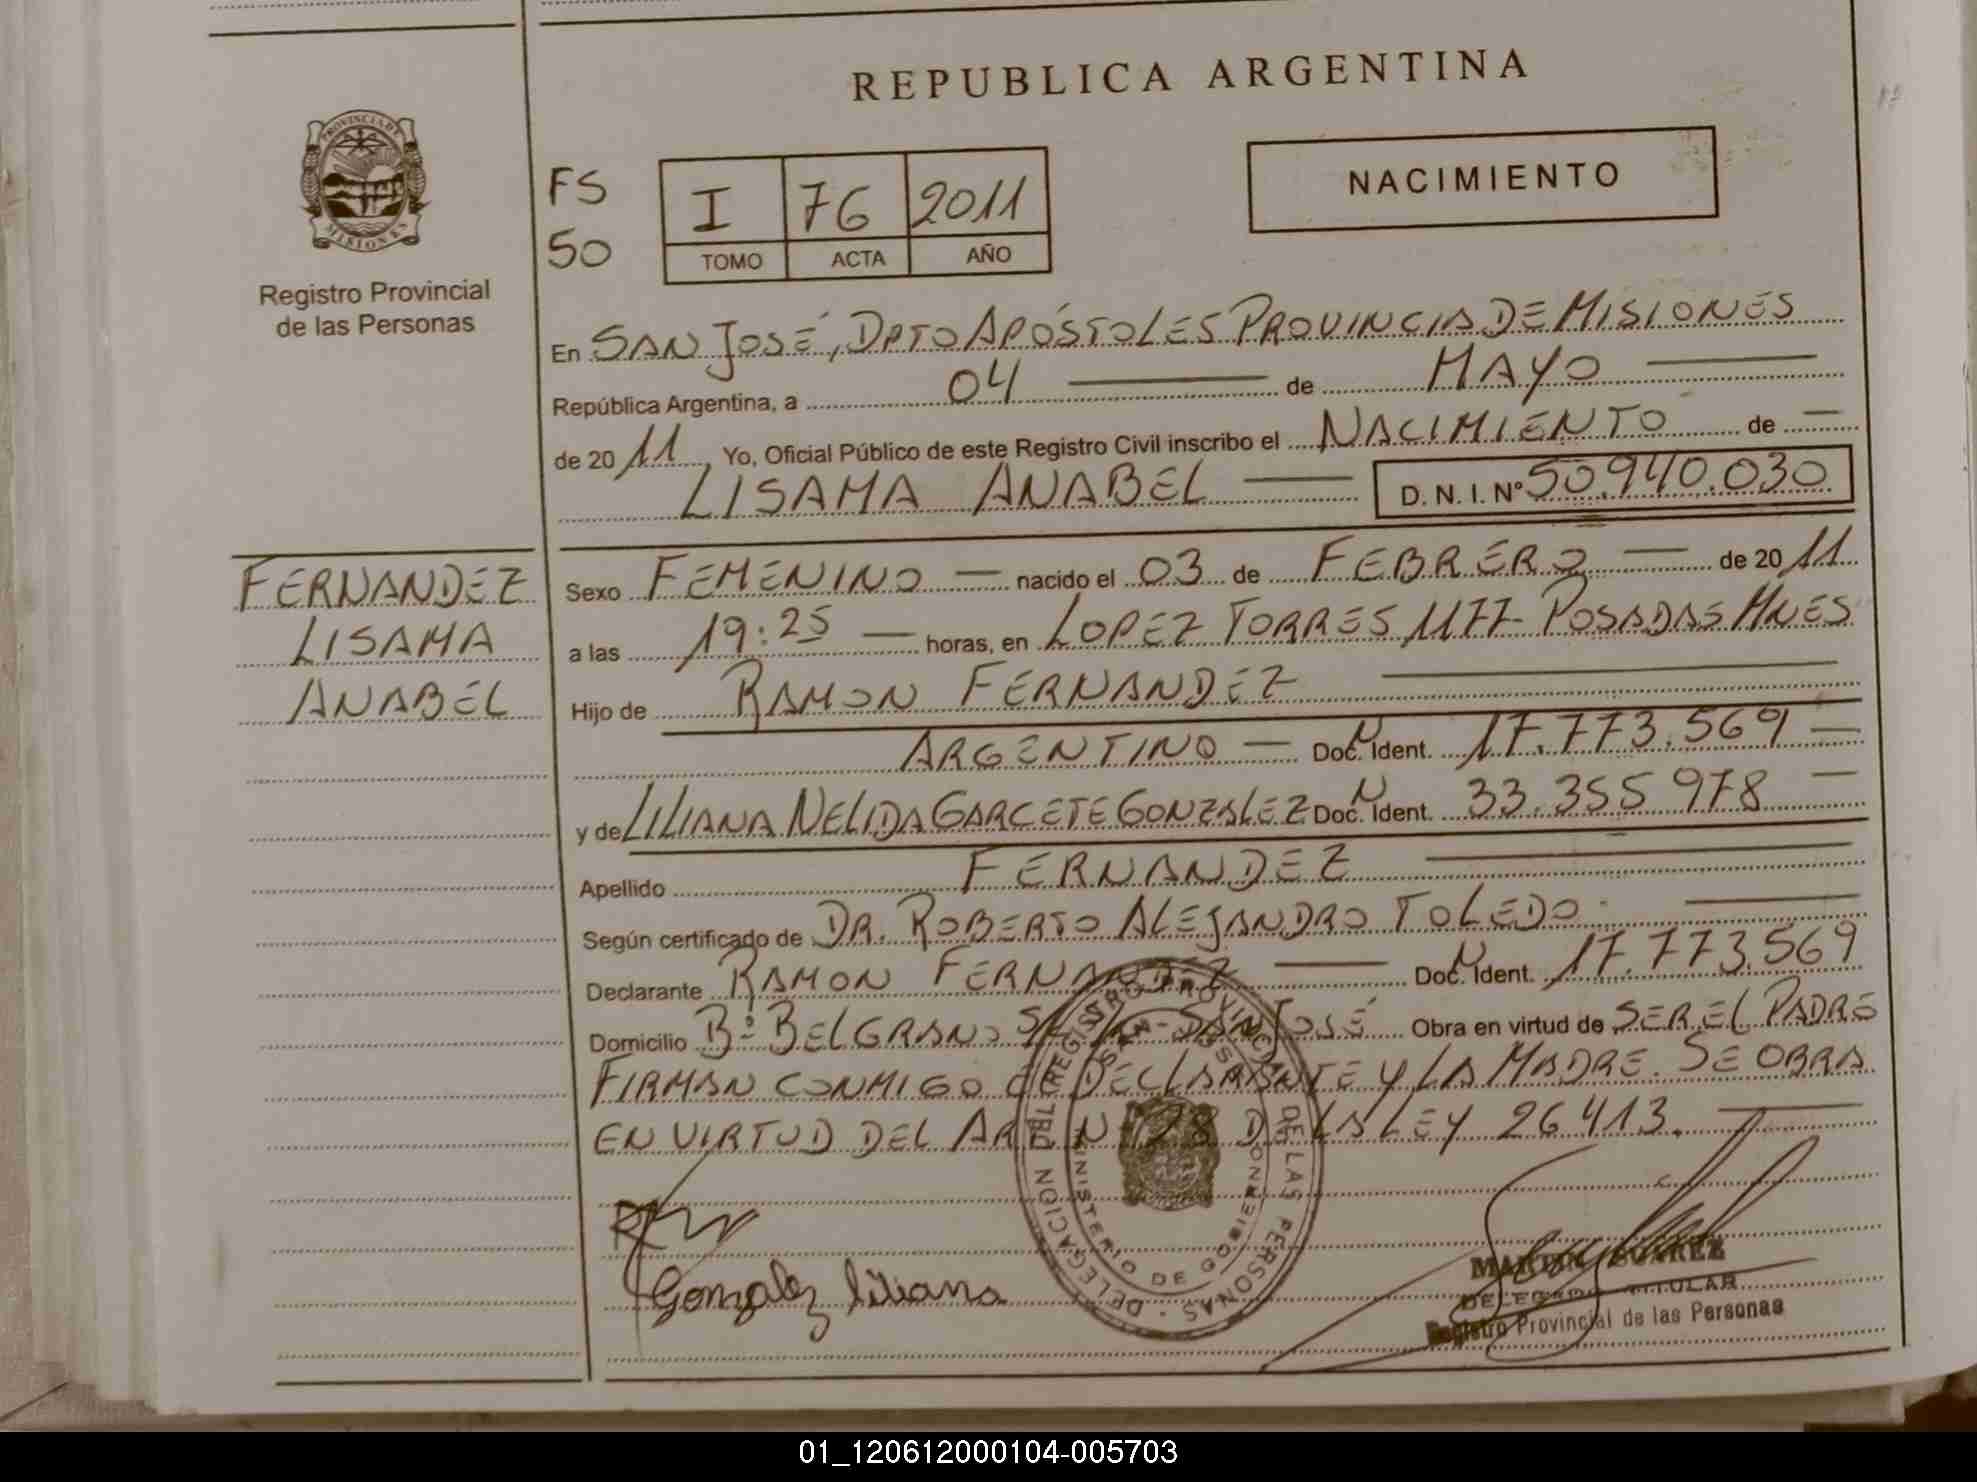 REPUBLICA ARGENTINA
PROVINCIA DE
MISIONES
Registro Provincial
de las Personas
FS
50
I 76 2011
TOMO ACTA AÑO
NACIMIENTO
En SAN JOSÉ, DPTO APÓSTOLES PROVINCIA DE MISIONES
República Argentina, a 04 de MAYO
de 2011 Yo, Oficial Público de este Registro Civil inscribo el NACIMIENTO de
LISAMA ANABEL D. N. I. Nº 50.940.030
FERNANDEZ
LISAMA
ANABEL
Sexo FEMENINO nacido el 03 de FEBRERO de 2011
a las 19:25 horas, en LOPEZ TORRES 1177 POSADAS MNES
Hijo de RAMON FERNANDEZ
ARGENTINO Doc. N Ident. 17.773.569
y de LILIANA NELIDA GARCETE GONZALEZ Doc. N Ident. 33.355 978
Apellido FERNANDEZ
Según certificado de DR. ROBERTO ALEJANDRO TOLEDO
Declarante RAMON FERNANDEZ Doc. N Ident. 17.773.569
Domicilio Bº BELGRANO SAN JOSÉ Obra en virtud de SER EL PADRE
FIRMAN CONMIGO DECLARANTE Y LA MADRE. SE OBRA
EN VIRTUD DEL ART N 28 D LA LEY 26413.
DEL REGISTRO PROVINCIAL DE LAS PERSONAS - DELEGACION
SAN JOSE
MINISTERIO DE GOBIERNO
Gonzalez liliana
MARTIN SUAREZ
DELEGADO TITULAR
Registro Provincial de las Personas
01_120612000104-005703